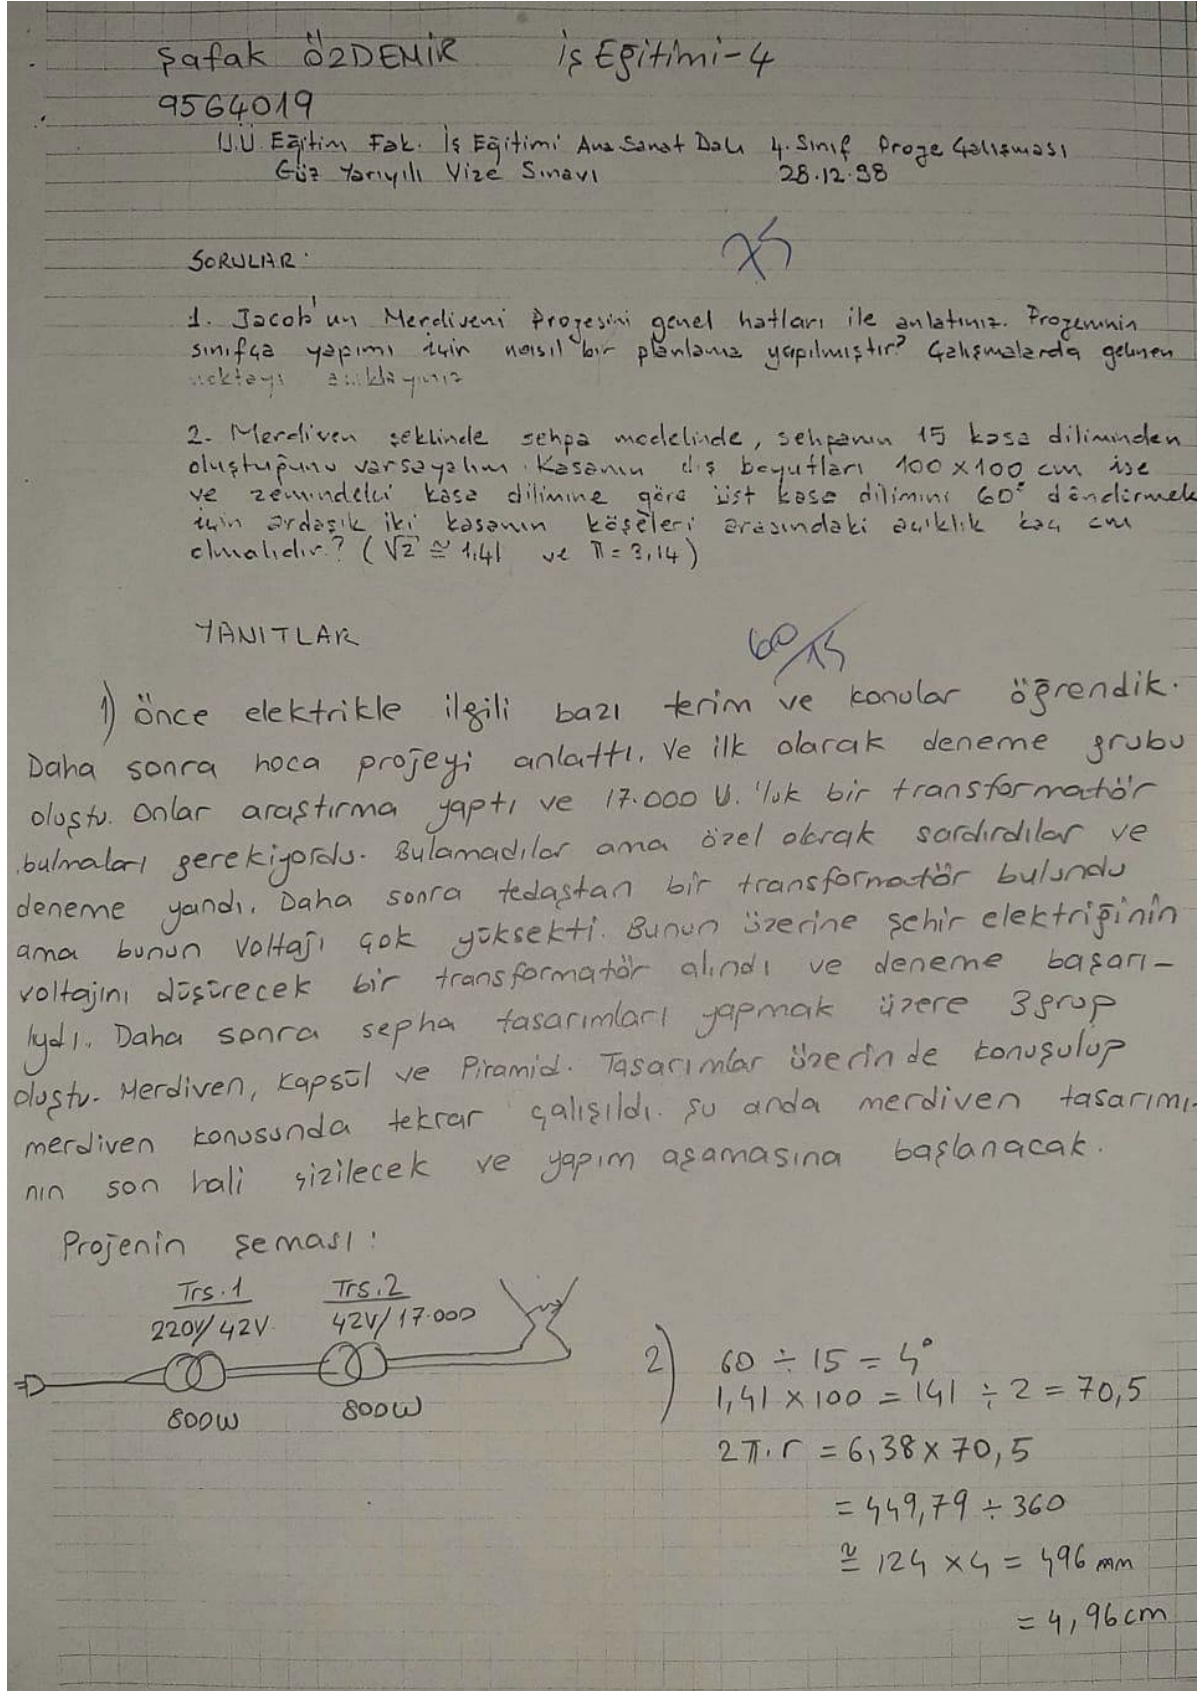 Şafak ÖZDEMİR İş Eğitimi-4
9564019
U.Ü. Eğitim Fak. İş Eğitimi Ana Sanat Dalı 4. Sınıf Proje Çalışması
Güz Yarıyılı Vize Sınavı 28.12.98
75
SORULAR:
1. Jacob'un Merdiveni Projesini genel hatları ile anlatınız. Projeninin
sınıfça yapımı için nasıl bir planlama yapılmıştır? Çalışmalarda gelinen
noktayı açıklayınız
2. Merdiven şeklinde sehpa modelinde, sehpanın 15 kasa diliminden
oluştuğunu varsayalım. Kasanın dış boyutları 100x100 cm ise
ve zemindeki kasa dilimine göre üst kasa dilimini 60° döndürmek
için ardaşık iki kasanın köşeleri arasındaki açıklık kaç cm
olmalıdır? (√2 ≅ 1,41 ve π = 3,14)
YANITLAR
60/15
1) Önce elektrikle ilgili bazı terim ve konular öğrendik.
Daha sonra hoca projeyi anlattı. Ve ilk olarak deneme grubu
oluştu. Onlar araştırma yaptı ve 17.000 V.'luk bir transformatör
bulmaları gerekiyordu. Bulamadılar ama özel olarak sardırdılar ve
deneme yandı. Daha sonra tedaştan bir transformatör bulundu
ama bunun voltajı çok yüksekti. Bunun üzerine şehir elektriğinin
voltajını düşürecek bir transformatör alındı ve deneme başarı-
lıydı. Daha sonra sepha tasarımları yapmak üzere 3 grup
oluştu. Merdiven, Kapsül ve Piramid. Tasarımlar üzerinde konuşulup
merdiven konusunda tekrar çalışıldı. Şu anda merdiven tasarımı-
nın son hali çizilecek ve yapım aşamasına başlanacak.
Projenin şeması:
Trs.1 Trs.2
220V/42V 42V/17.000
800W 800W
2) 60 ÷ 15 = 4°
1,41 x 100 = 141 ÷ 2 = 70,5
2π.r = 6,38 x 70,5
= 449,79 ÷ 360
≅ 124 x 4 = 496 mm
= 4,96 cm